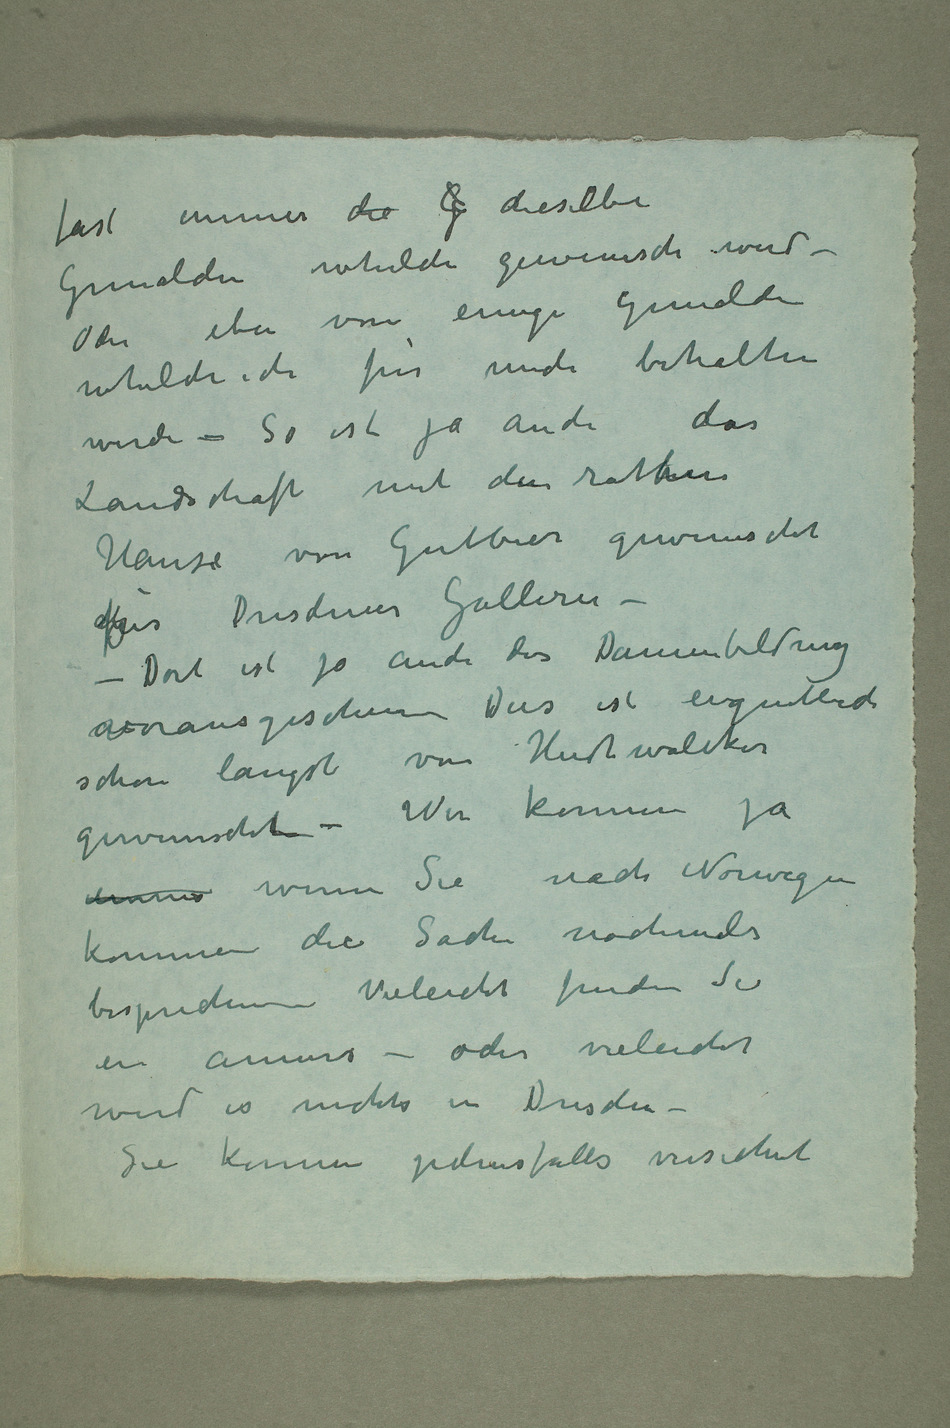 fast immer die G dieselbe
Gemälden whelche gewünscht wird –
Oder eben von einige Gemälden
whelche ich für mich behalten
werde – So ist ja auch das
Landschaft mit den rothem
Hause von Gutbier gewünscht
für Dresdener Gallerie –
– Dort ist ja auch das Damenbildnig
vorausgesehen Dies ist eigentlich
schon längst von Hudtwalcker
gewünscht – Wir können ja
immer wenn Sie nach Norwegen
kommen die Sache nochmals
besprechen Vieleicht finden Sie
ein anners – oder vieleicht
wird es nichts in Dresden –
Sie können jedensfalls versichert